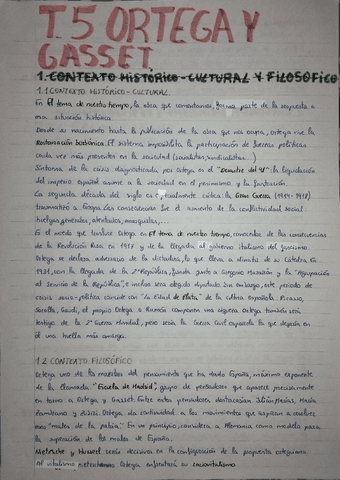 T.5 ORTEGA Y
GASSET
1. CONTEXTO HISTÓRICO-CULTURAL Y FILOSÓFICO
1.1 CONTEXTO HISTÓRICO-CULTURAL
En El tema de nuestro tiempo, la obra que comentamos, forma parte de la respuesta a
una situación histórica.
Desde su nacimiento hasta la publicación de la obra que nos ocupa, Ortega vive la
Restauración borbónica. El sistema imposibilita la participación de fuerzas políticas
cada vez más presentes en la sociedad (socialistas, sindicalistas...)
Síntoma de la crisis diagnosticada por Ortega es el "Desastre del 98": la liquidación
del imperio español sume a la sociedad en el pesimismo y la frustración.
La segunda década del siglo es especialmente crítica: la Gran Guerra (1914-1918)
traumatizó a Europa. Las consecuencias fue el aumento de la conflictividad social:
huelgas generales, atentados,
En el modo que tuvimos Ortega en El tema de nuestro tiempo, conocedor de las consecuencias
de la Revolución Rusa en 1917 y de la llegada al gobierno italiano del fascismo.
Ortega se declara adversario de la dictadura, lo que lleva a dimitir de su Cátedra. En
1931, con la llegada de la 2ª República, funda junto a Gregorio Marañón y la "Agrupación
al Servicio de la República", e incluso sería elegido diputado. Sin embargo, este período de
crisis socio-política coincide con "La Edad de Plata" de la cultura española. Picasso,
Sorolla, Gaudí, el propio Ortega o Ramón componen una Ortega también será
testigo de la 2ª Guerra Mundial, pero sería la Guerra Civil española la que dejaría en
él una huella más amarga.
1.2 CONTEXTO FILOSÓFICO
Ortega uno de los maestros del pensamiento que ha dado España, máximo exponente
de la llamada "Escuela de Madrid", grupo de pensadores que aparece precisamente
en torno a Ortega y Gasset. Entre estos pensadores destacarían Julián Marías, María
Zambrano y Zubiri. Ortega da continuidad a los movimientos que aspiran a resolver
los "males de la patria". En un principio, considera a Alemania como modelo para
la superación de los males de España.
Nietzsche y Husserl serán decisivos en la configuración de la propuesta orteguiana.
Al vitalismo nietzscheano Ortega enfrentará su raciovitalismo